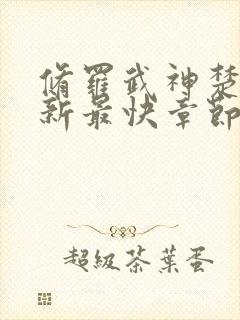 脩羅武神楚
新最快章節
超級茶葉蛋